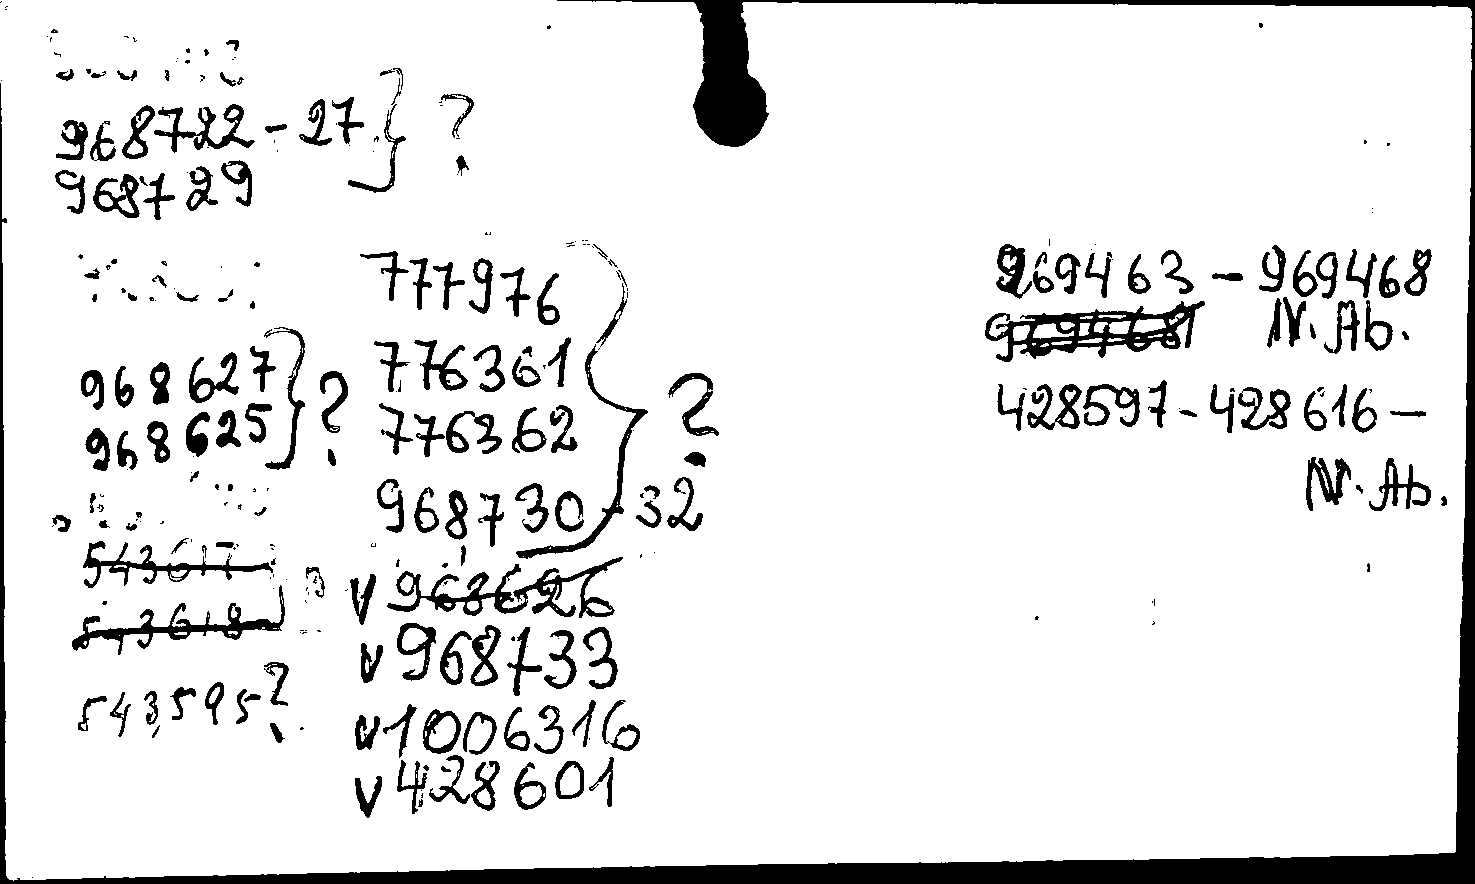 968722 - 27 } ?
968729
968627 } ?
968625
543617
543618
543595?
777976
776361
776362 } ?
968730 - 32
v 968626
v 968733
v 1006316
v 428601
969463 - 969468
969468 N. Ab.
428597 - 428616 -
N. Ab.